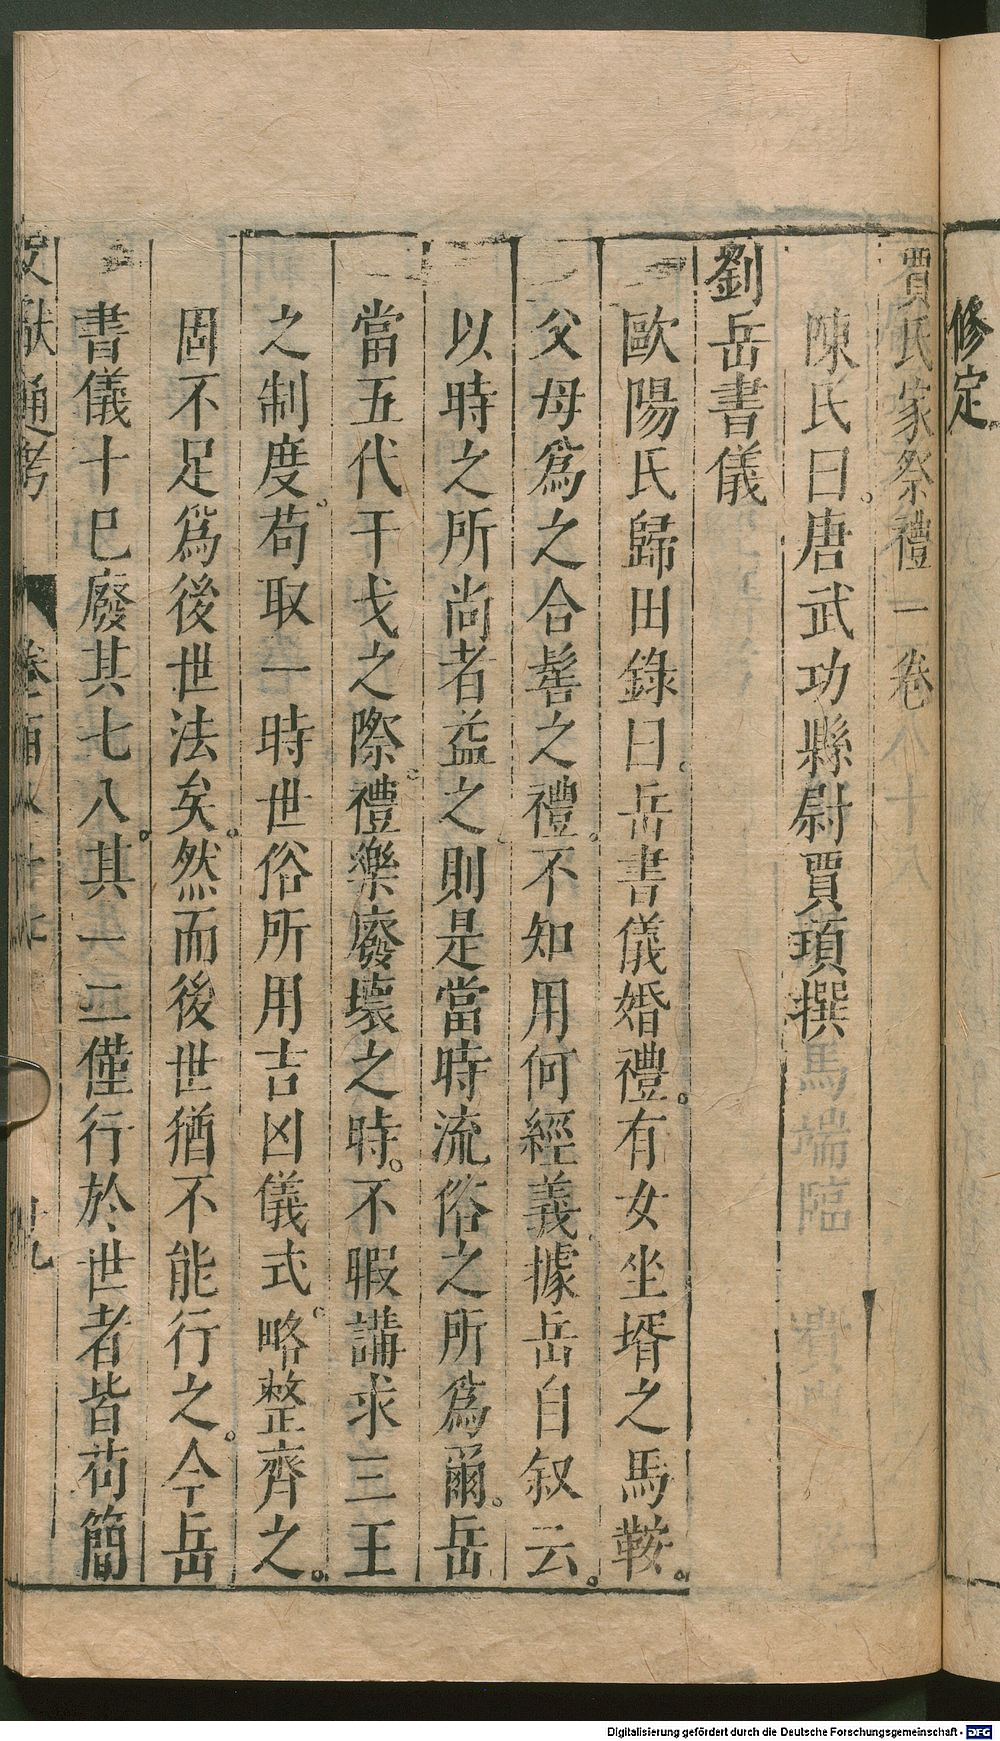 修定
賈氏家祭禮一卷
陳氏曰。唐武功縣尉賈頊撰
劉岳書儀
歐陽氏歸田錄曰。岳書儀婚禮。有女坐壻之馬鞍。
父母爲之合髻之禮。不知用何經義據岳自叙云。
以時之所尚者益之則是當時流俗之所爲爾。岳
當五代干戈之際。禮樂廢壞之時。不暇講求三王
之制度。苟取一時世俗所用吉凶儀式。略整齊之。
固不足爲後世法矣。然而後世猶不能行之。今岳
書儀十巳廢其七八。其一二僅行於世者皆苟簡
文獻通考 卷一百八十七 廿九
Digitalisierung gefördert durch die Deutsche Forschungsgemeinschaft - DFG